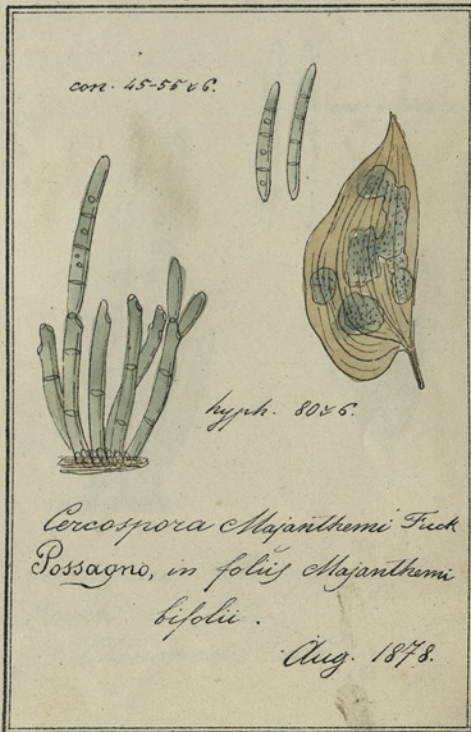 con. 45-55 x 6.
hyph. 80 x 6.
Cercospora Majanthemi Fuck
Possagno, in foliis Majanthemi
bifolii.
Aug. 1878.